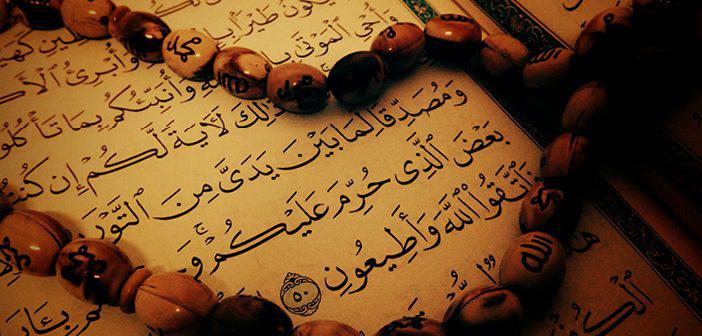 ـكُونُ طَيْرًۢا بِـ
وَأُبْرِئُ ٱلْأَكْـ
وَأُحْىِ ٱلْمَوْتَىٰ بِـ
وَأُنَبِّئُكُم بِمَا تَأْكُلُو
ذَٰلِكَ لَـَٔايَةً لَّكُمْ إِن كُنتُـ
وَمُصَدِّقًا لِّمَا بَيْنَ يَدَىَّ مِنَ ٱلتَّوْرَ
بَعْضَ ٱلَّذِى حُرِّمَ عَلَيْكُمْ ۚ وَ
فَٱتَّقُوا۟ ٱللَّهَ وَأَطِيعُونِ ٥٠
محمد
الله